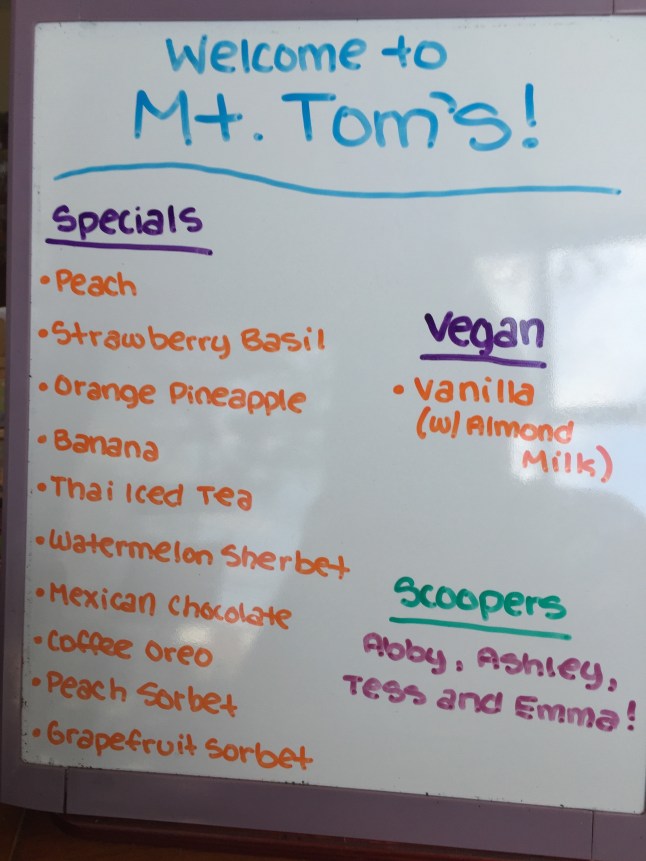 Welcome to
Mt. Tom's!
Specials
• Peach
• Strawberry Basil
• Orange Pineapple
• Banana
• Thai Iced Tea
• Watermelon Sherbet
• Mexican Chocolate
• Coffee Oreo
• Peach Sorbet
• Grapefruit Sorbet
Vegan
• Vanilla
(w/ Almond
Milk)
Scoopers
Abby, Ashley,
Tess and Emma!